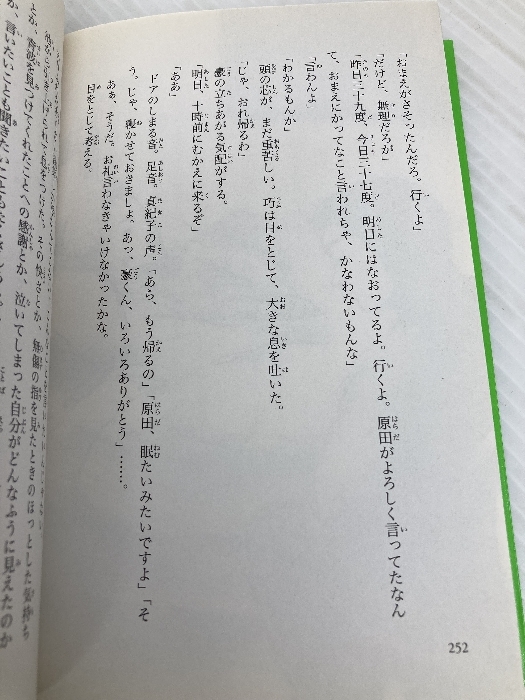 「おまえがさそったんだろ。行くよ」
「だけど、無理だろが」
「昨日三十九度、今日三十七度。明日にはなおってるよ。行くよ。原田がよろしく言ってたなん
て、おまえにかってなこと言われちゃ、かなわないもんな」
「言わんよ」
「わかるもんか」
頭の芯が、まだ重苦しい。巧は目をとじて、大きな息を吐いた。
「じゃ、おれ帰るわ」
豪の立ちあがる気配がする。
「明日、十時前にむかえに来るぞ」
「ああ」
ドアのしまる音。足音。真紀子の声。「あら、もう帰るの」「原田、眠たいみたいですよ」「そ
う。じゃ、寝かせておきましょ。あっ、豪くん、いろいろありがとう」……。
あぁ、そうだ。お礼言わなきゃいけなかったかな。
目をとじて考える。
とか、青波を見つけてくれたことへの感謝とか、泣いてしまった自分がどんなふうに見えたのか
か、言いたいことも聞きたいことも
252